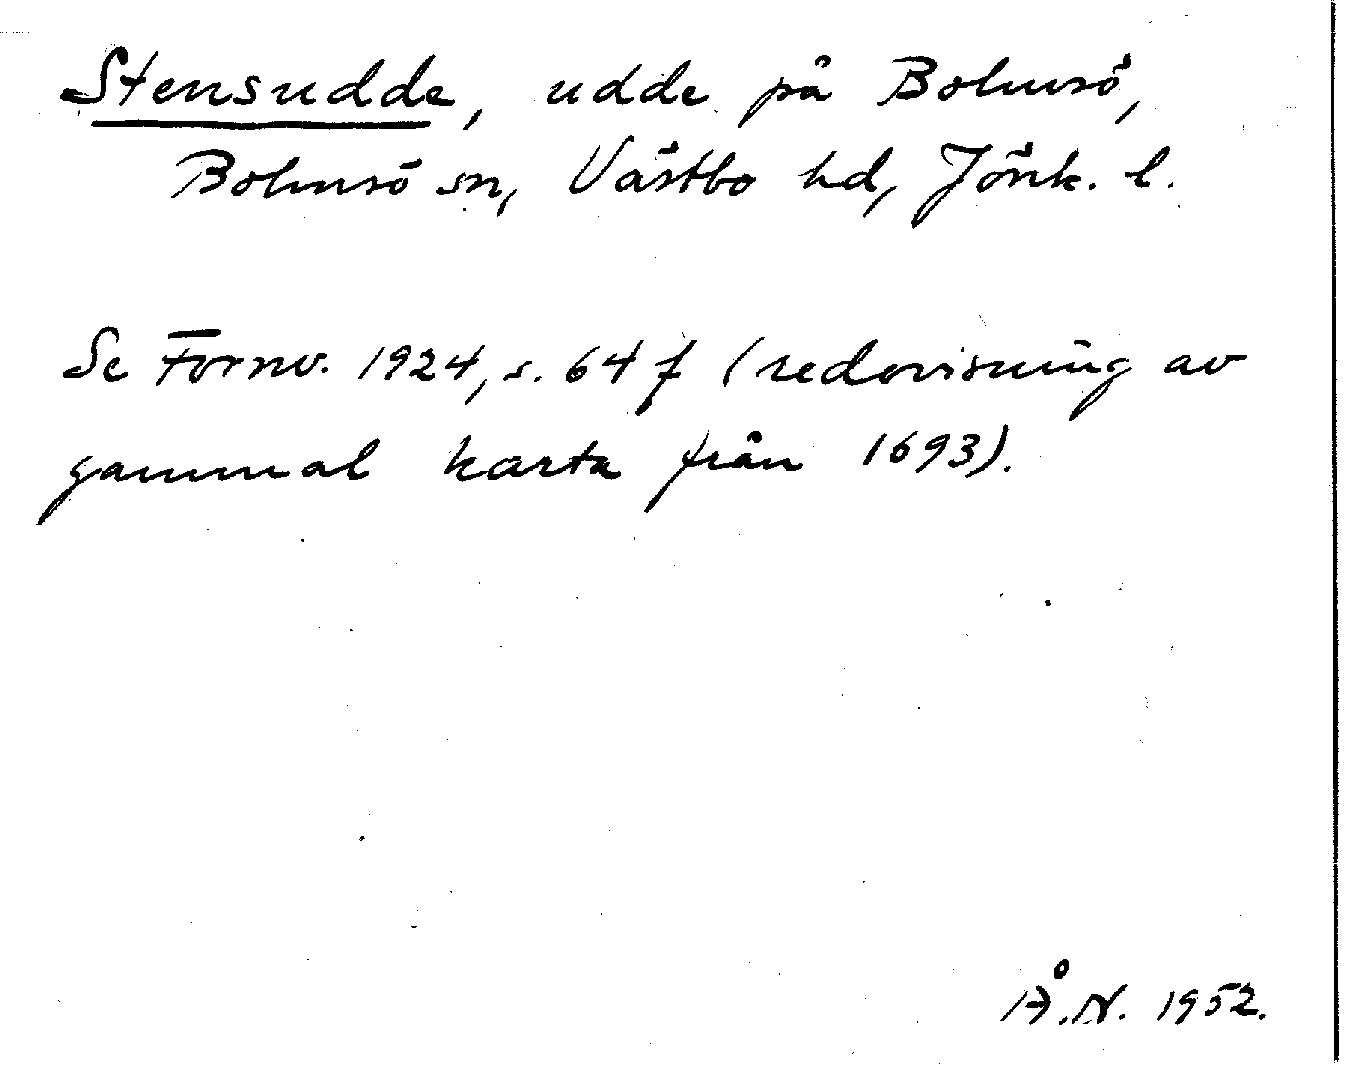 Stensudde, udde på Bolmsö,
Bolmsö sn, Västbo hd, Jönk. l.
Se Fornv. 1924, s. 64 f (redovisning av
gammal karta från 1693).
Å.N. 1952.